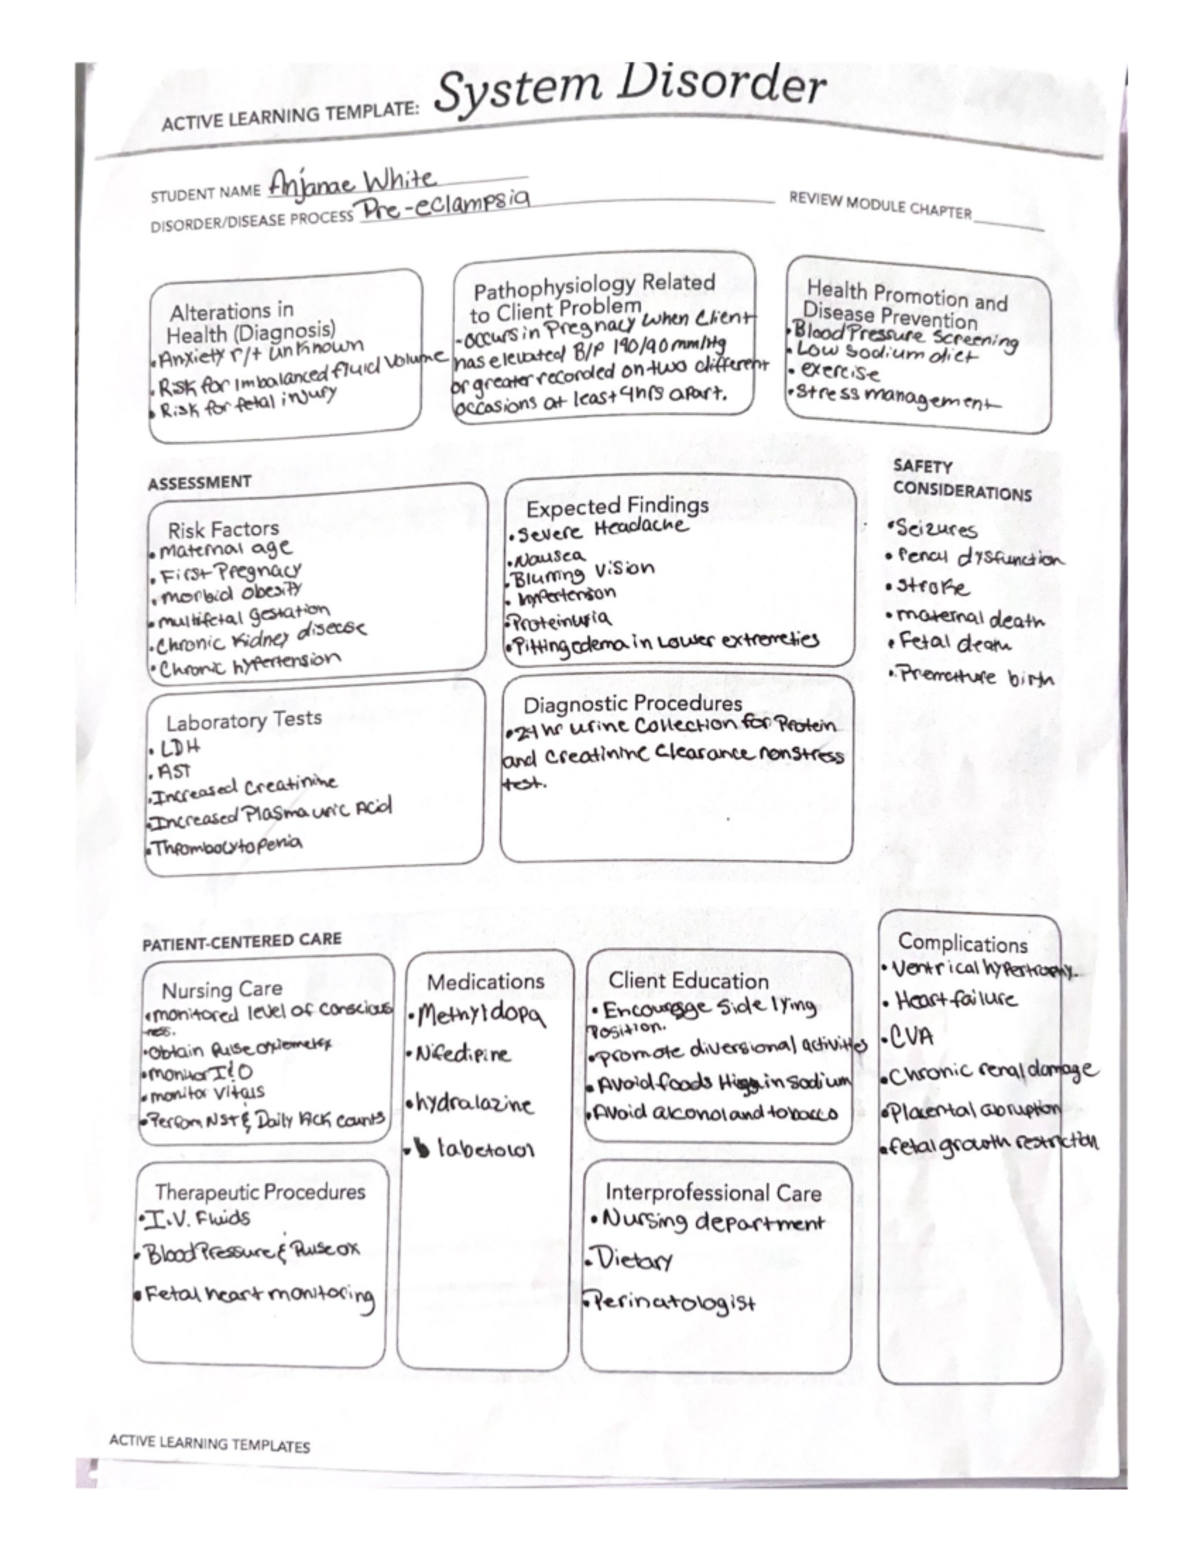 ACTIVE LEARNING TEMPLATE: System Disorder
STUDENT NAME Anjanae White
DISORDER/DISEASE PROCESS Pre-eclampsia
REVIEW MODULE CHAPTER
Alterations in
Health (Diagnosis)
• Anxiety r/t unknown
• Risk for imbalanced fluid volume
• Risk for fetal injury
Pathophysiology Related
to Client Problem
- occurs in Pregnacy when Client
has elevated B/P 140/90 mm/Hg
or greater recorded on two different
occasions at least 4hrs apart.
Health Promotion and
Disease Prevention
• Blood Pressure Screening
• Low sodium diet
• exercise
• Stress management
ASSESSMENT
Risk Factors
• maternal age
• First Pregnacy
• morbid obesity
• multifetal gestation
• Chronic Kidney disease
• Chronic hypertension
Expected Findings
• Severe Headache
• Nausea
• Blurring vision
• hypertenson
• Proteinuria
• Pitting edema in Lower extremeties
SAFETY
CONSIDERATIONS
• Seizures
• Renal dysfunction
• Stroke
• maternal death
• Fetal death
• Premature birth
Laboratory Tests
• LDH
• AST
• Increased Creatinine
• Increased Plasma uric Acid
• Thrombocytopenia
Diagnostic Procedures
• 24 hr urine Collection for Protein
and Creatinine Clearance nonstress
test.
PATIENT-CENTERED CARE
Nursing Care
• monitored level of conscious
ness.
• Obtain Pulse oxiometer
• monitor I&O
• monitor vitals
• Perform NST & Daily Kick counts
Medications
• Methyldopa
• Nifedipine
• hydralazine
• labetolol
Client Education
• Encourage Side lying
Position.
• promote diversional activities
• Avoid foods High in Sodium
• Avoid alcohol and tobacco
Complications
• Ventrical hypertrophy.
• Heart failure
• CVA
• Chronic renal damage
• Placental abruption
• fetal growth restriction
Therapeutic Procedures
• I.V. Fluids
• Blood Pressure & Pulse ox
• Fetal heart monitoring
Interprofessional Care
• Nursing department
• Dietary
• Perinatologist
ACTIVE LEARNING TEMPLATES